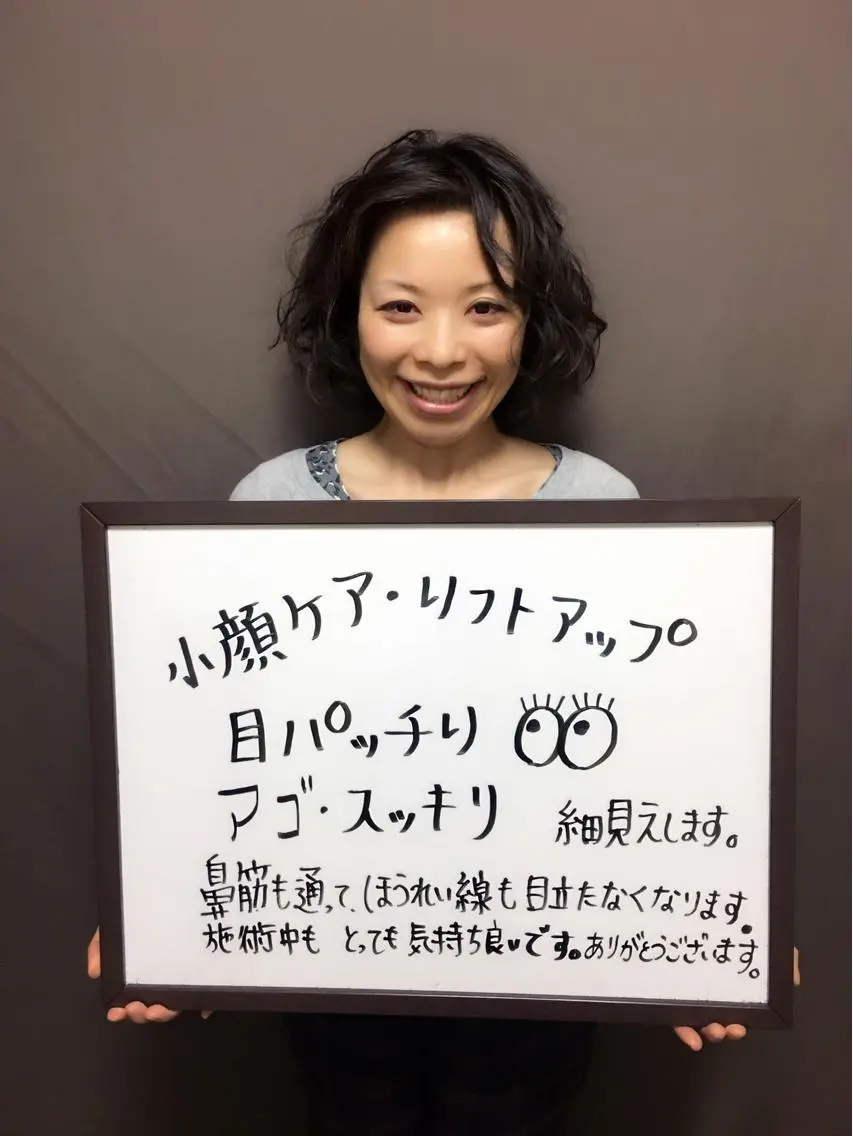 小顔ケア・リフトアップ
目パッチリ
アゴ・スッキリ 細見えします。
鼻筋も通って、ほうれい線も目立たなくなります。
施術中も とっても気持ち良いです。ありがとうございます。